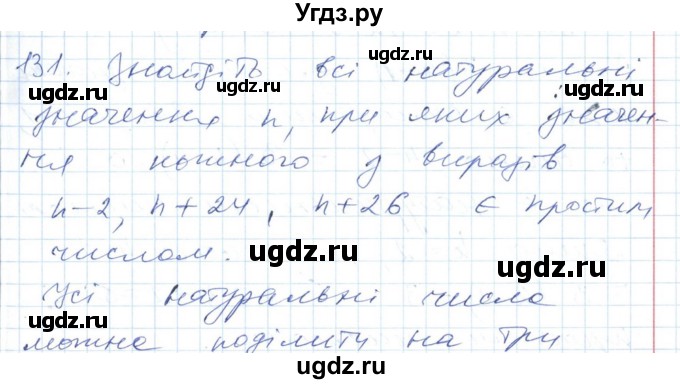 Угдз.ру
131. Знайдіть всі натуральні
ugdz.ru ugdz.ru ugdz.ru
значення n, при яких значен-
ня кожного з виразів
ugdz.ru
n-2, n+24, n+26 є простим
ugdz.ru ugdz.ru
числом.
ugdz.ru
Усі натуральні числа
ugdz.ru ugdz.ru
можна поділити на три
ugdz.ru